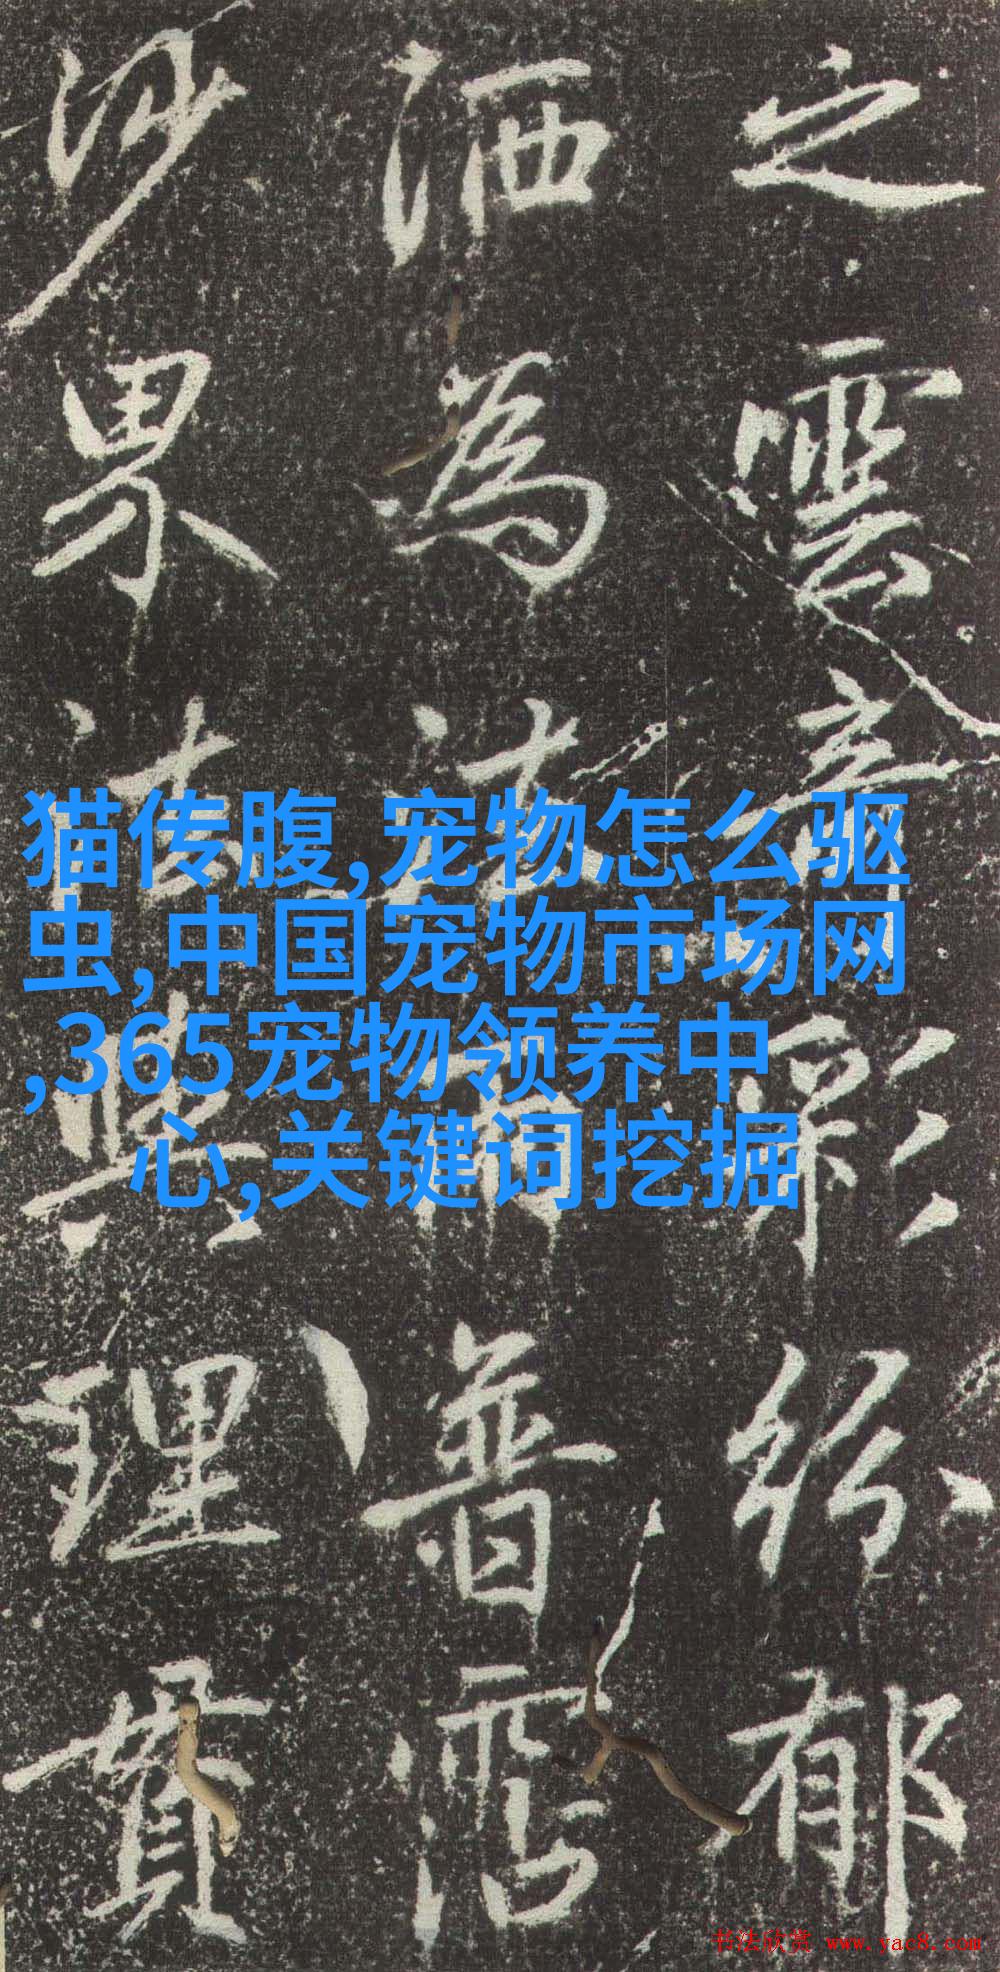 之雲彩紛郁
洒為法雨普霑
沙界法與理貫
猫传腹,宠物怎么驱
虫,中国宠物市场网
,365宠物领养中
心,关键词挖掘
书法欣赏 www.yac8.com